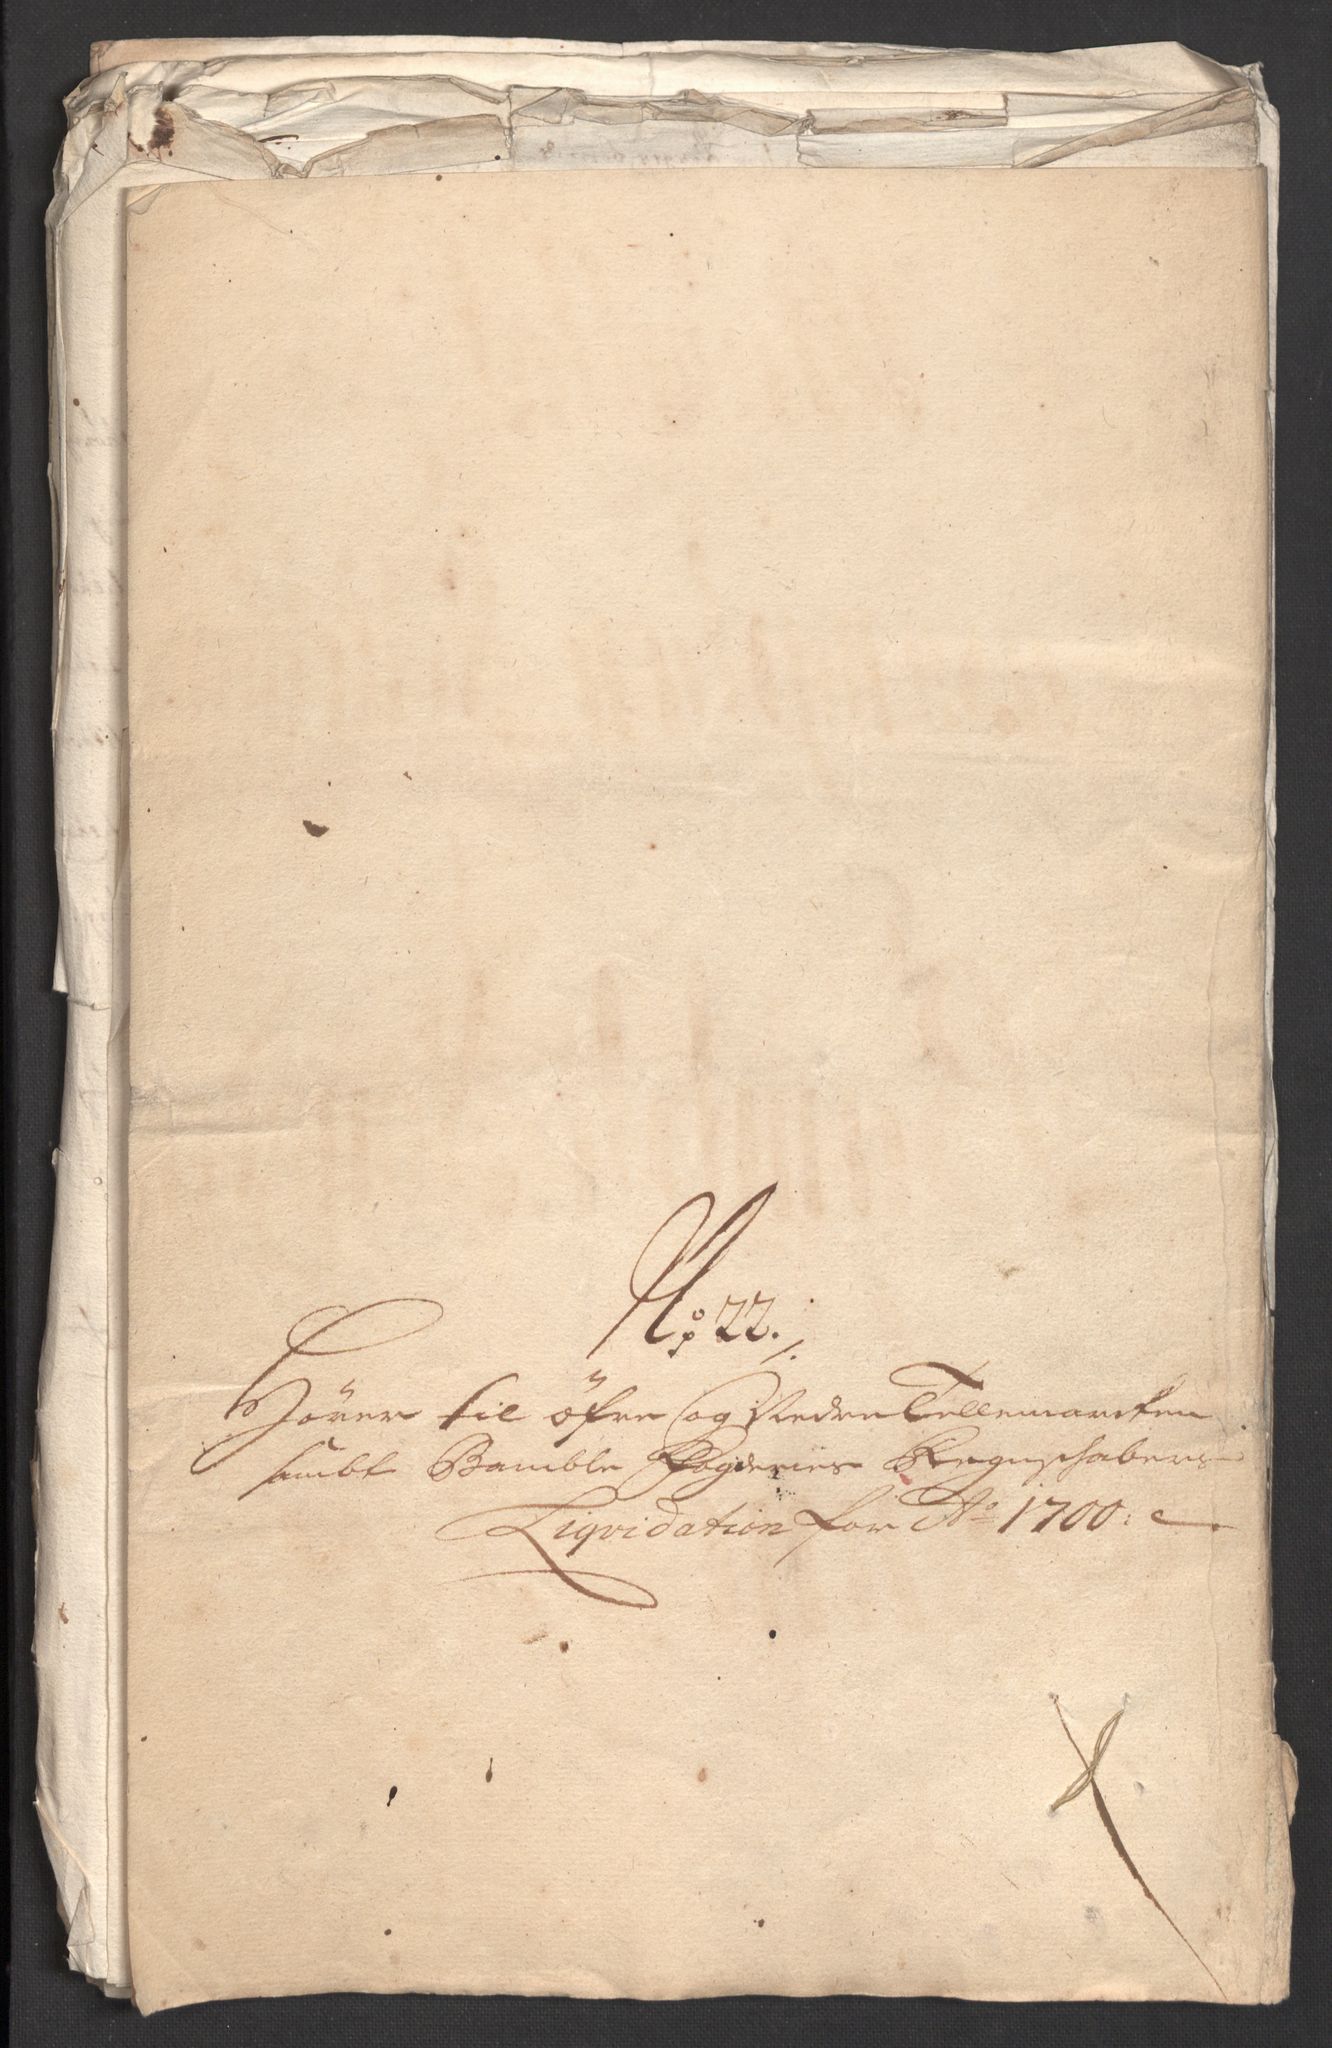 No: 22./.
Hörer til öfre og Neden Tellemarcken
sambt Bamble Fogderies Regnschabers
Liqvidation for Ao 1700: